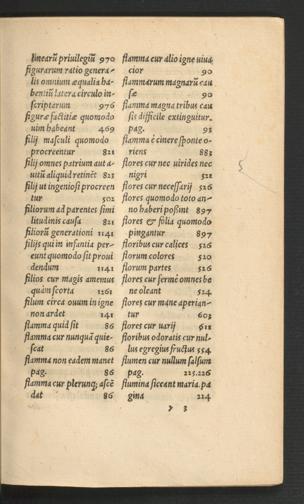 linearũ priuilegiũ 970
figurarum ratio genera-
lis omnium æqualia ha-
bentiũ latera circulo in-
scripterum 976
figuræ factitiæ quomodo
uim habeant 469
filij masculi quomodo
procreentur 821
filij omnes patrium aut a-
uitũ aliquid retinẽt 821
filij ut ingeniosi procreen
tur 502
filiorum ad parentes simi
litudinis causa 821
filiorũ generationi 1141
filijs qui in infantia per-
eunt quomodo sit proui
dendum 1141
filios cur magis amemus
quàm scorta 1261
filum circa ouum in igne
non ardet 141
flamma quid sit 86
flamma cur nunquã quie-
scat 86
flamma non eadem manet
pag. 86
flamma cur plerunq; ascẽ
dat 86
flamma cur alio igne uiua
cior 90
flammarum magnarũ cau
sæ 90
flamma magna tribus cau
sis difficile extinguitur.
pag. 91
flamma è cinere sponte o-
riens 883
flores cur nec uirides nec
nigri 521
flores cur necessarij 526
flores quomodo toto an-
no haberi possint 897
flores & folia quomodo
pingantur 897
floribus cur calices 526
florum colores 520
florum partes 526
flores cur fermè omnes be
ne oleant 524
flores cur mane aperian-
tur 603
flores cur uarij 611
floribus odoratis cur nul-
lus egregius fructus 554
flumen cur nullum salsum
pag. 225.226
flumina siccent maria. pa
gina 214
y 3